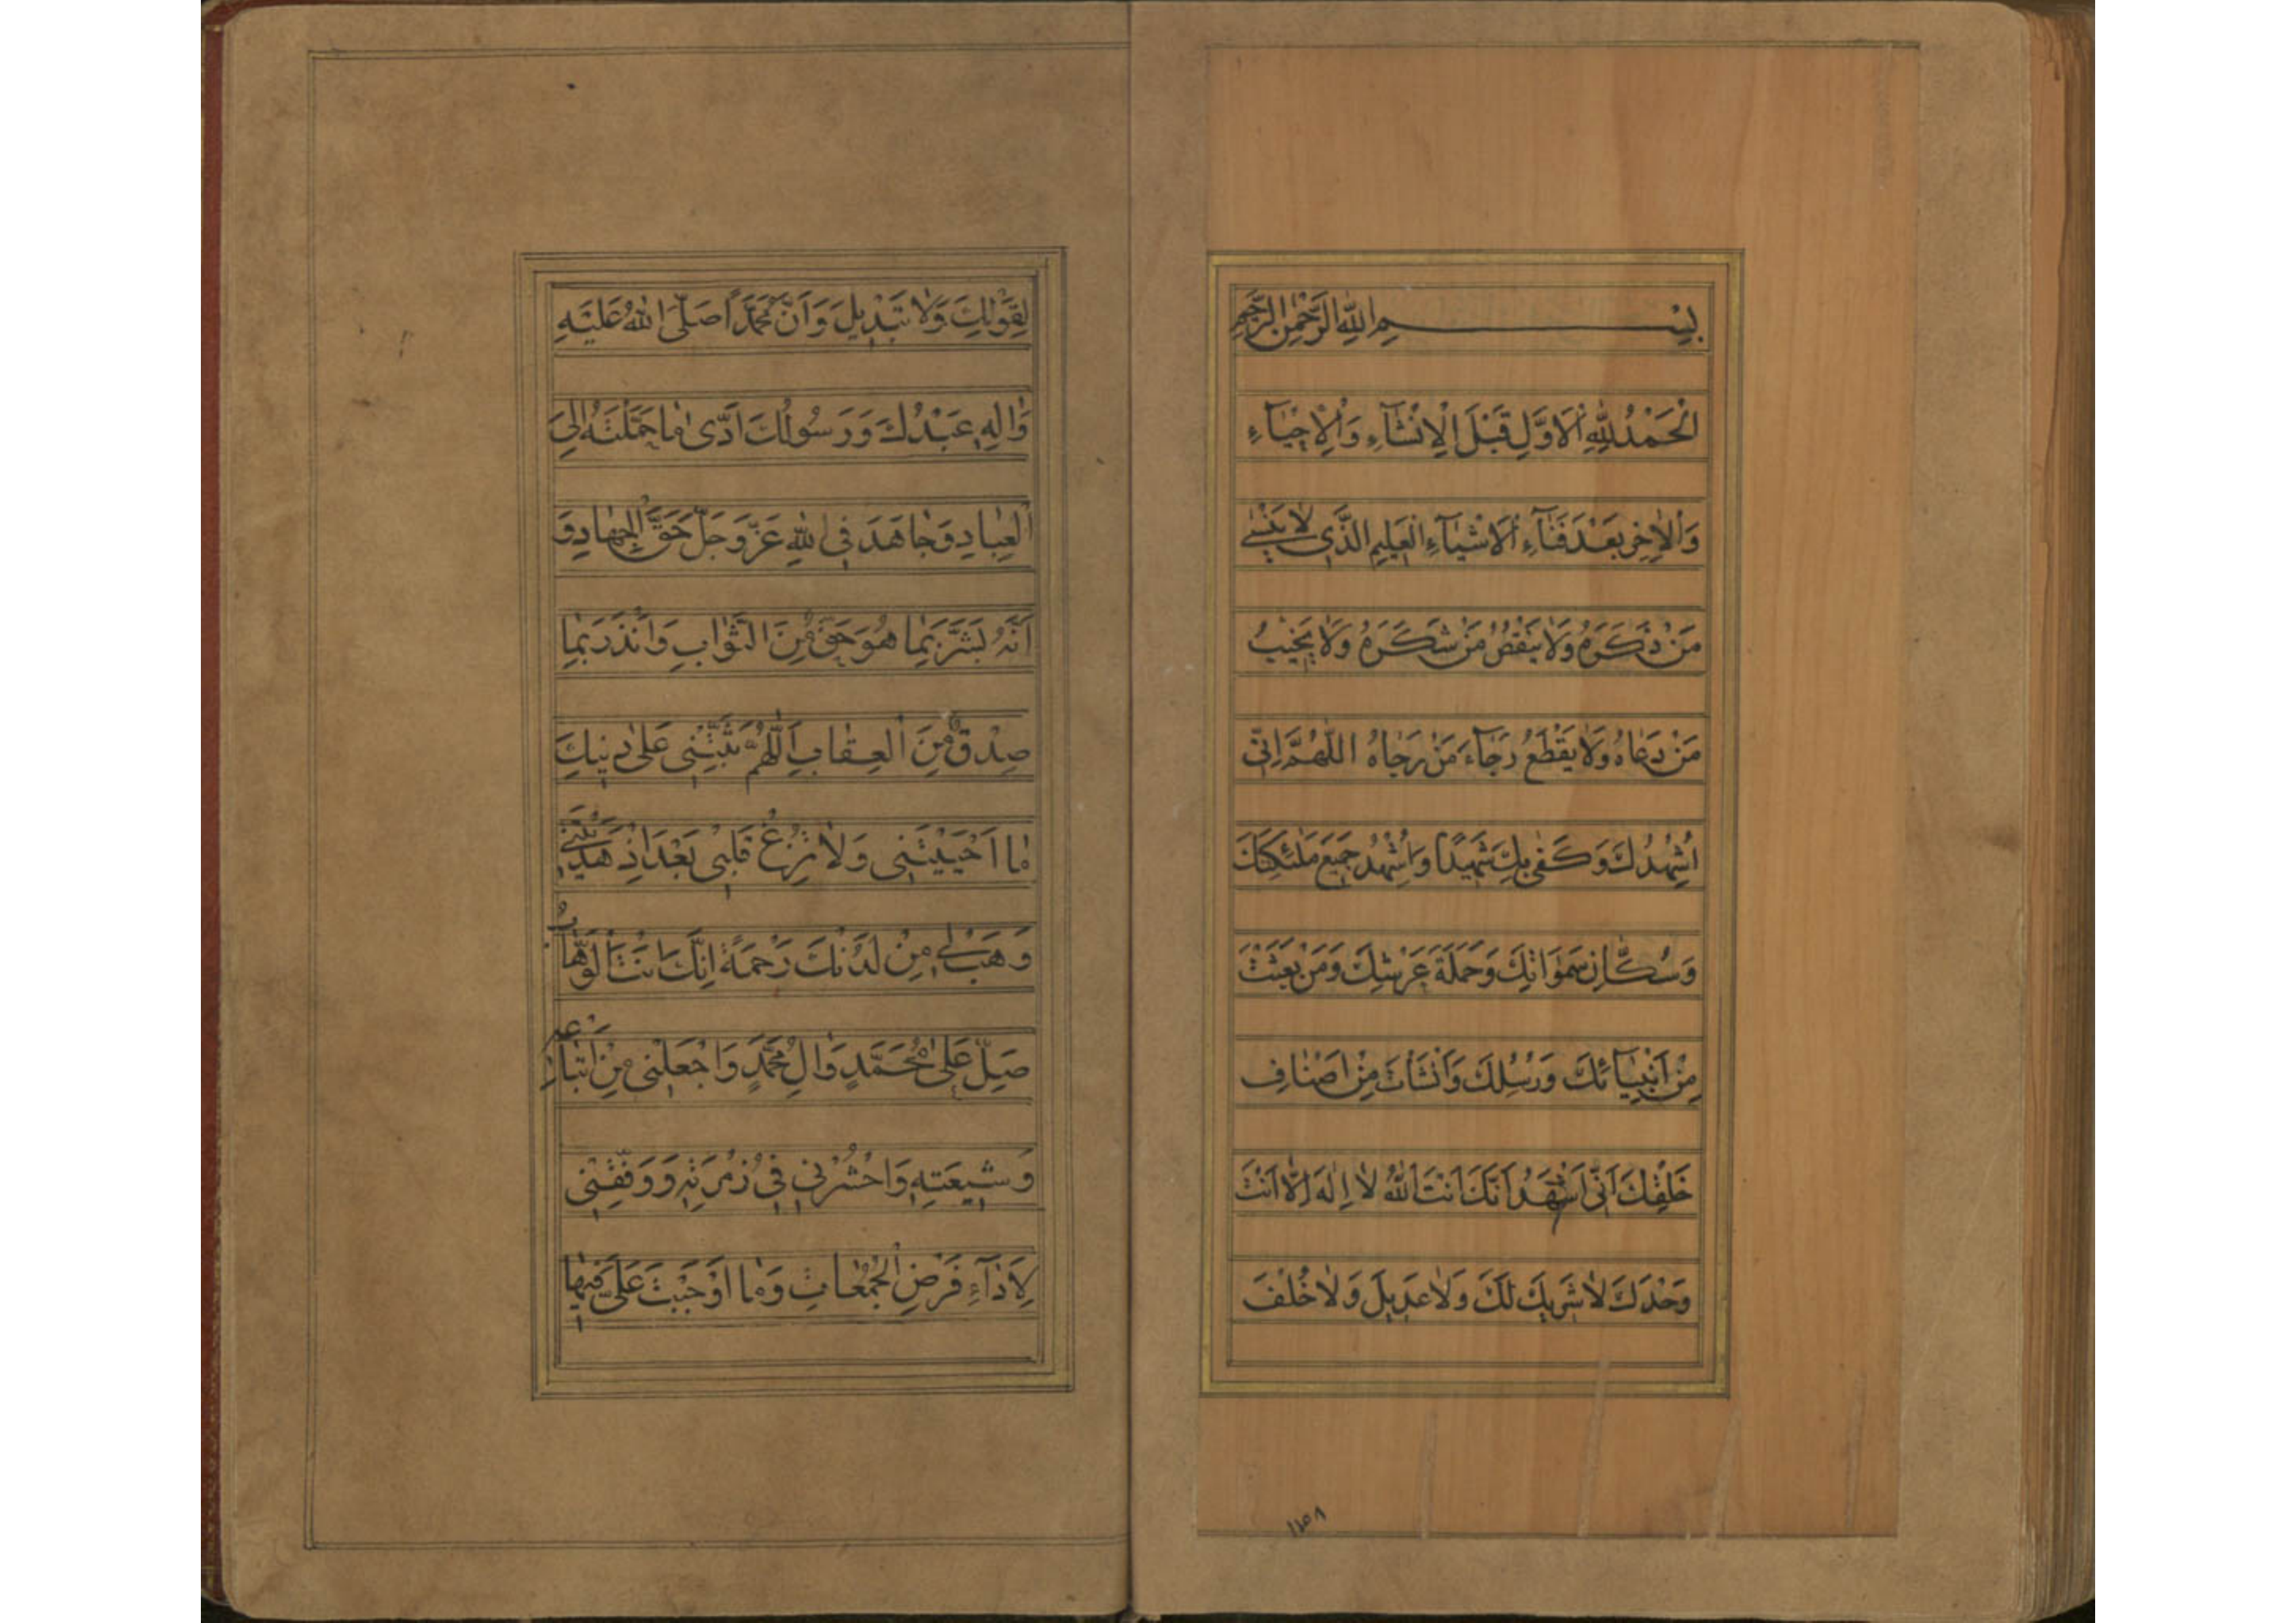 بِسْمِ اللّٰهِ الرَّحْمٰنِ الرَّحِيمِ
اَلْحَمْدُ لِلّٰهِ الْاَوَّلِ قَبْلَ الْاِنْشَآءِ وَالْاِحْيَآءِ
وَالْاٰخِرِ بَعْدَ فَنَآءِ الْاَشْيَآءِ الْعَلِيمِ الَّذِي لَا يَنْسٰى
مَنْ ذَكَرَهُ وَلَا يَنْقُصُ مَنْ شَكَرَهُ وَلَا يَخِيبُ
مَنْ دَعَاهُ وَلَا يَقْطَعُ رَجَآءَ مَنْ رَجَاهُ اَللّٰهُمَّ اِنِّي
اُشْهِدُكَ وَكَفٰى بِكَ شَهِيدًا وَاُشْهِدُ جَمِيعَ مَلٰئِكَتِكَ
وَسُكَّانِ سَمٰوَاتِكَ وَحَمَلَةَ عَرْشِكَ وَمَنْ بَعَثْتَ
مِنْ اَنْبِيَآئِكَ وَرُسُلِكَ وَاَنْشَأْتَ مِنْ اَصْنَافِ
خَلْقِكَ اَنِّي اَشْهَدُ اَنَّكَ اَنْتَ اللّٰهُ لَا اِلٰهَ اِلَّا اَنْتَ
وَحْدَكَ لَا شَرِيكَ لَكَ وَلَا عَدِيلَ وَلَا خُلْفَ
لِقَوْلِكَ وَلَا تَبْدِيلَ وَاَنَّ مُحَمَّدًا صَلَّى اللّٰهُ عَلَيْهِ
وَاٰلِهِ عَبْدُكَ وَرَسُولُكَ اَدّٰى مَا حَمَّلْتَهُ اِلَى
الْعِبَادِ وَجَاهَدَ فِي اللّٰهِ عَزَّ وَجَلَّ حَقَّ الْجِهَادِ وَ
اَنَّهُ بَشَّرَ بِمَا هُوَ حَقٌّ مِنَ الثَّوَابِ وَاَنْذَرَ بِمَا
صِدْقٌ مِنَ الْعِقَابِ اَللّٰهُمَّ ثَبِّتْنِي عَلٰى دِينِكَ
مَا اَحْيَيْتَنِي وَلَا تُزِغْ قَلْبِي بَعْدَ اِذْ هَدَيْتَنِي
وَهَبْ لِي مِنْ لَدُنْكَ رَحْمَةً اِنَّكَ اَنْتَ الْوَهَّابُ
صَلِّ عَلٰى مُحَمَّدٍ وَاٰلِ مُحَمَّدٍ وَاجْعَلْنِي مِنْ اَتْبَاعِهِ
وَشِيعَتِهِ وَاحْشُرْنِي فِي زُمْرَتِهِ وَوَفِّقْنِي
لِاَدَآءِ فَرْضِ الْجُمُعَاتِ وَمَا اَوْجَبْتَ عَلَيَّ فِيهَا